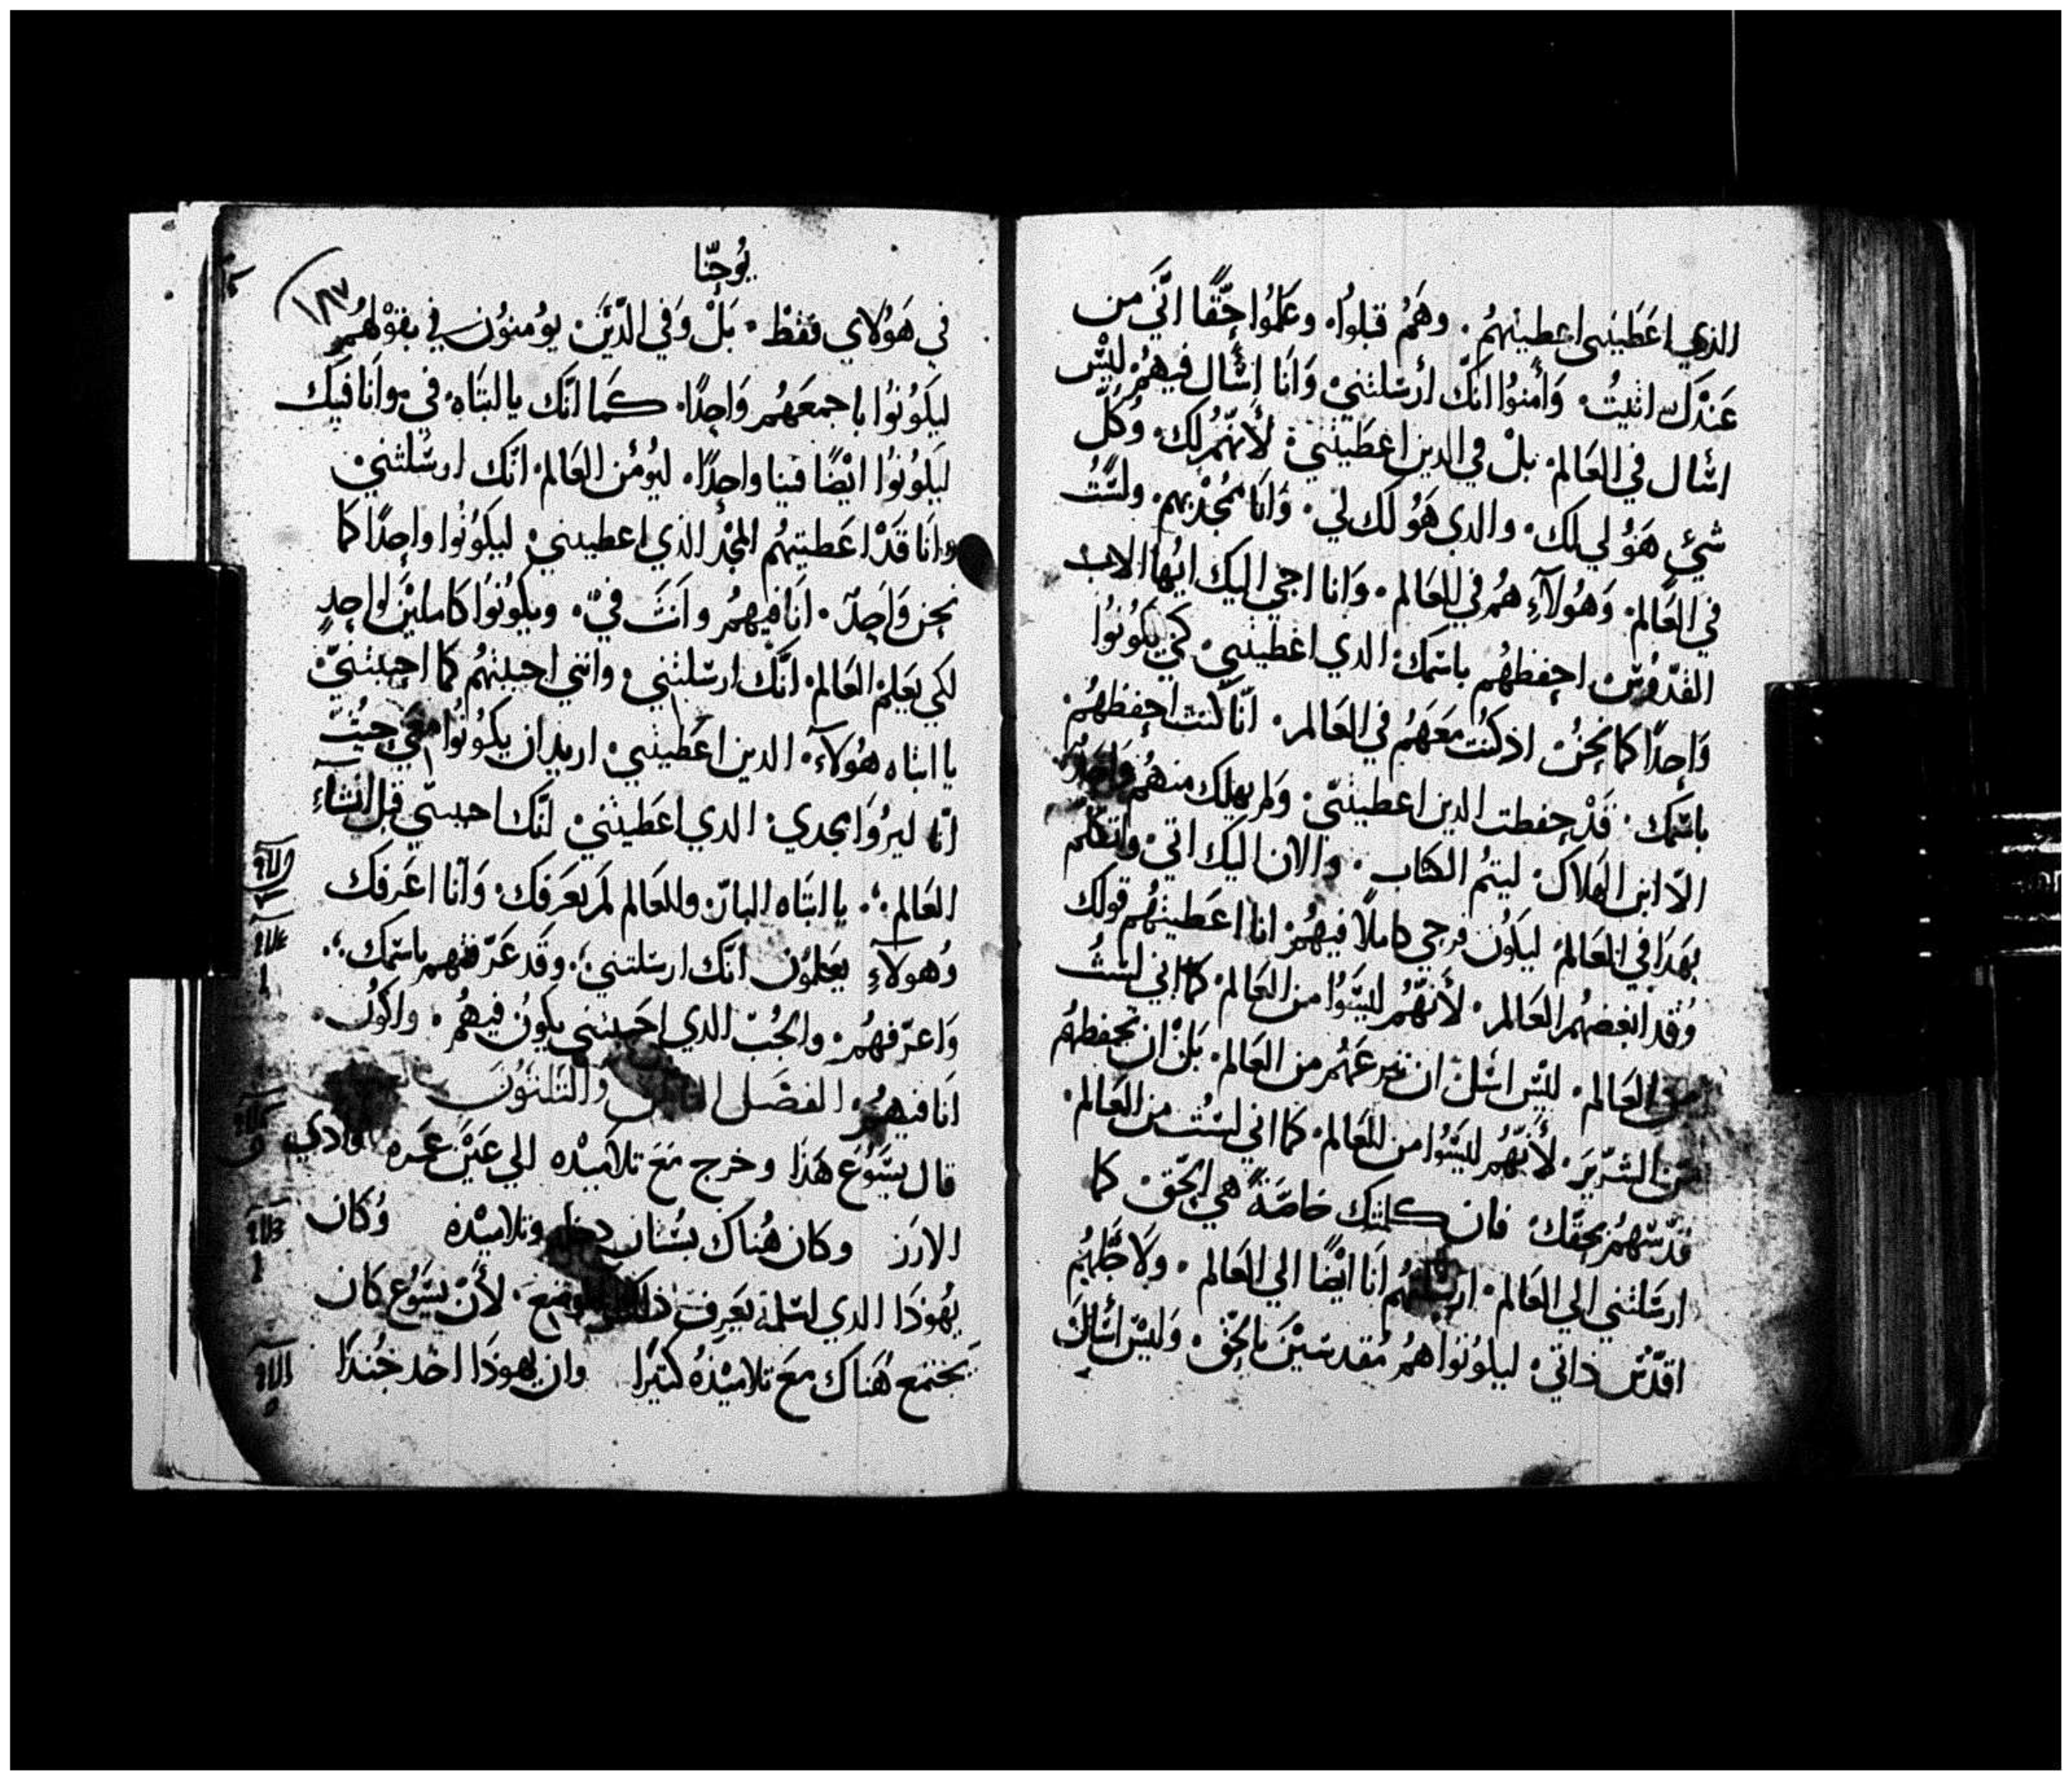 الذي اعَطَيتني اعطيتهمُ. وهَمُ قبلوُا. وعَلموُا حَقًا انَّي من
عَندَك اتيتُ. وَأمنوُا انكَّ أرسَلتني. وَانَا اسَّال فيهمُ. ليسَ
اسَّال في العَالم. بلْ في الدين اعَطَيتَني. لأنهَّمُ لك. وَكُل
شيٍ هَوُ لي لك. والدي هَوُ لك لي. وَانَا ممُجَد بهم. ولسَّتُ
في العَالم. وَهُولآءِ همُ في العَالم. وَانا اجي اليك ايهُا الاب
القدُّوسَ احفظهُم باسَمك. الدي اعطيتني. كَي يَكوُنوُا
وَاحدًا كما نَحنُ. اذ كنُت مَعَهمُ في العَالم. انَا كنت احفظهُم.
باسَمك. قَدْ حفظت الدين اعطيتنيّ. وَلم يهلك منهمُ وَاحدٌ
الاّ ابن الهلاك. ليتمُ الكتاب. والان اليك اتي. واتكلم
بهَدَا في العَالم. ليكوُن فرحي كاملاً فيهمُ. انا اعَطيتهُم قولك
وَقد ابغضهمُ العَالم. لأنهَّمُ ليسَوُا من العَالم. كما اني لسَتُ
من العَالم. ليسَ اسَّل ان تنزعَهمُ من العَالم. بَلْ ان تحفظهمُ
من الشرَّير. لأنهَّمُ ليسَوُا من العَالم. كما اني لسَتُ من العَالم.
قدَّسهمُ بحقّك. فان كلمتك خاصَةً هي الحَق. كما
ارسَلتني الي العَالم. ارسَلتهُم انَا ايضًا الي العَالم. وَلاجَلهمُ
اقدّسَ ذاتي. ليكوُنوُا همُ مُقدسَيْنَ بالحَق. وَليسَ أسَالك
يُوحَنّا
١٨٧
في هَوُلاي فقطْ. بَلْ وَفي الدَّيْنَ يوُمنوُن في بقوْلهمُ
ليكَوُنوُا باجمعَهُم وَاحِدًا. كَمَا انَّك يا ابتَاه. في. وانَا فيَك
ليكَوُنوُا ايْضًا فينا واحدًا. ليوُمن العَالم. انَّك ارسَلتني
وانَا قَدْ اعَطيتهُم المجْد الذي اعطيتني. ليكَوُنوُا واحدًا كما
نحن وَاحِدٌ. انَا فيهمُ وانَتَ فيْ. ويكوُنوَا كَامليْنَ لواحِدٍ
لكي يَعَلم العَالم. انَّك ارسَلتني. وانني احببتهُم كما احببتنيّ
يا ابتاه هَوُلآءَ. الدين اعَطيتني. اريد ان يكوُنوُا معَي حيُت
انَا ليرُوَا مجدي. الدي اعَطيتني. لنَّك احببتني قبل انشآءِ
العَالم.. يا ابتَاه البارّ. والعَالم لَم يعَرفك. وَانَا اعَرفك
وَهولآءِ يعَلموُن انَّك ارسَلتني.. وقَد عَرَّفتهم باسَمك..
وَاعَرّفهمُ. والحُبّ الدي احَببتني يكوُن فيهمُ. واكوُن.
انَا فيهمُ. الفصَل والتلتوُنَ
قال يسَوُعَ هَذَا وخرج مَعَ تلاميْده الي عَبْرَ غمَره وَادي
الارز وكان هُناك بسُتان دخله وتلاميْده وَكان
يهُوذَا الدي اسَلمه يَعرفَ ذلك الموضعَ. لأنَ يسَوُع كان
يجتمع هُنَاك معَ تلاميْذهُ كثيرًا وان يهوذَا اخد جُندًا